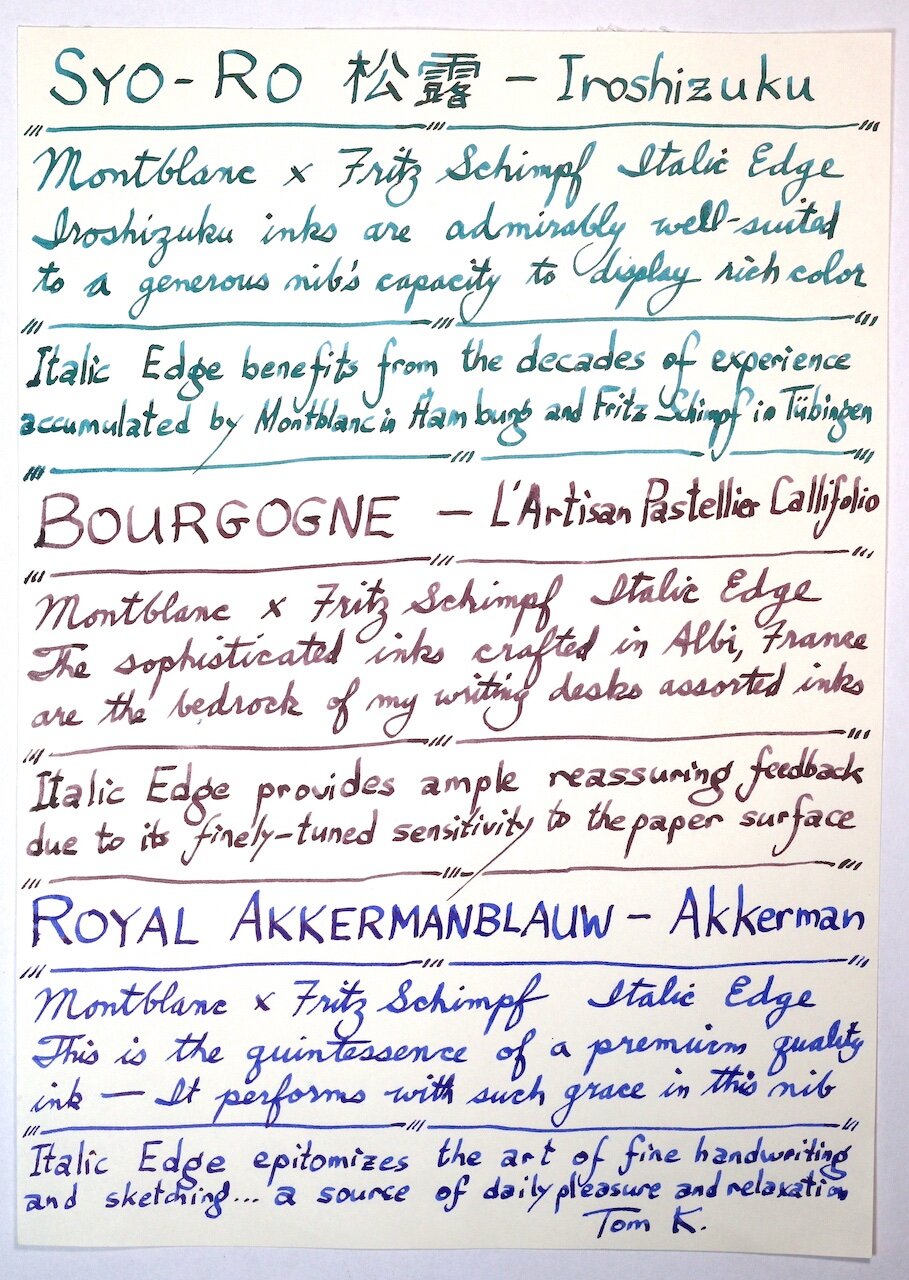 SYO-RO 松露 - Iroshizuku
Montblanc x Fritz Schimpf Italic Edge
Iroshizuku inks are admirably well-suited
to a generous nib's capacity to display rich color
Italic Edge benefits from the decades of experience
accumulated by Montblanc in Hamburg and Fritz Schimpf in Tübingen
BOURGOGNE - L'Artisan Pastellier Callifolio
Montblanc x Fritz Schimpf Italic Edge
The sophisticated inks crafted in Albi, France
are the bedrock of my writing desks assorted inks
Italic Edge provides ample reassuring feedback
due to its finely-tuned sensitivity to the paper surface
ROYAL AKKERMANBLAUW - Akkerman
Montblanc x Fritz Schimpf Italic Edge
This is the quintessence of a premium quality
ink — It performs with such grace in this nib
Italic Edge epitomizes the art of fine handwriting
and sketching... a source of daily pleasure and relaxation
Tom K.